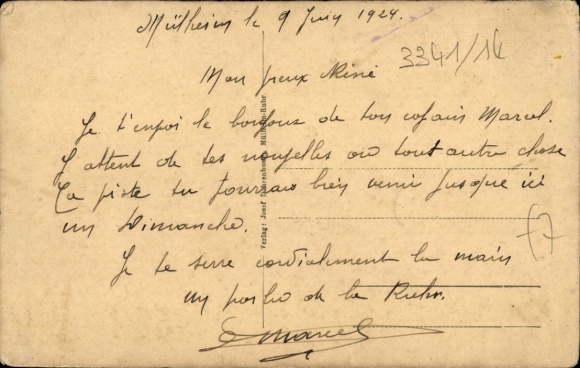 Mülheim le 9 Juin 1924.
3341/14
Mon vieux Néné
Je t'envoi le bonjour de ton copain Marcel.
J'attent de tes nouvelles ou tout autre chose
La piste tu pourrais bien venir jusque ici
un Dimanche.
Je te serre cordialement la main
un poilu de la Ruhr.
Marcel
Verlag: Josef Mülheim-Ruhr.
f7